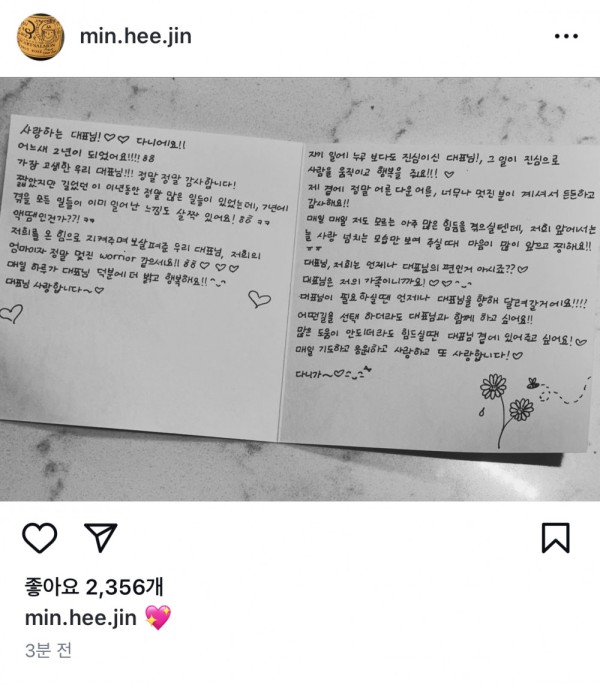 min.hee.jin
사랑하는 대표님! ♡♡ 다니에요!!
어느새 2년이 되었어요!!!! 88
가장 고생한 우리 대표님!!! 정말 정말 감사합니다!
짧았지만 길었던 이 이년동안 정말 많은 일들이 있었는데, 7년에
겪을 모든 일들이 이미 일어난 느낌도 살짝 있어요! 88
액땜인건가??! ㅠㅠ
저희를 온 힘으로 지켜주며 보살펴준 우리 대표님, 저희의
엄마이자 정말 멋진 worrior 같으세요!! 88 ♡ ♡ ♡
매일 하루가 대표님 덕분에 더 밝고 행복해요!! ^_^
대표님 사랑합니다~♡
자기 일에 누구 보다도 진심이신 대표님!, 그 일이 진심으로
사람을 움직이고 행복을 줘요!!! ♡
제 곁에 정말 어른 다운 어른, 너무나 멋진 분이 계셔서 든든하고
감사해요!!
매일 매일 저도 모르는 아주 많은 힘듦을 겪으실텐데, 저희 앞에서는
늘 사랑 넘치는 모습만 보여 주실 때 마음이 많이 아프고 찡해요!!
ㅠㅠ
대표님, 저희는 언제나 대표님의 편인거 아시죠??♡
대표님은 저의 가족이니까요! ♡♡^_^
대표님이 필요하실땐 언제나 대표님을 향해 달려갈거에요!!!!
어떤길을 선택 하더라도 대표님과 함께 하고 싶어요!!
많은 도움이 안되더라도 힘드실땐 대표님 곁에 있어주고 싶어요!♡
매일 기도하고 응원하고 사랑하고 또 사랑합니다!♡
다니가~♡^_^
좋아요 2,356개
min.hee.jin 💖
3분 전